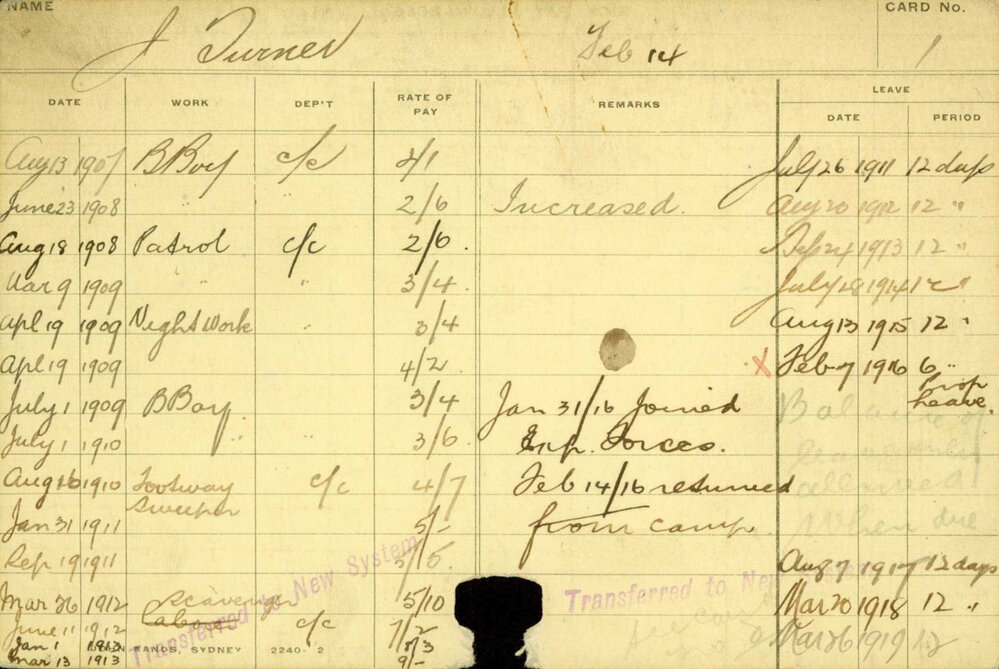 NAME CARD No.
J Turner Feb 14 1
LEAVE
DATE WORK DEP'T RATE OF PAY REMARKS DATE PERIOD
Aug 13 1907 B Boy c/c 2/1 July 26 1911 12 days
June 23 1908 2/6 Increased. Aug 20 1912 12 "
Aug 18 1908 Patrol c/c 2/6. Sep 24 1913 12 "
Mar 9 1909 " " 3/4. July 18 1914 12 "
Apl 19 1909 Night Work " 3/4 Aug 13 1915 12 "
Apl 19 1909 4/2 X Feb 7 1916 6 "
Prop
July 1 1909 B Boy. 3/4 Jan 31/16 Joined Leave.
July 1 1910 " " 3/6 Exp. Forces. Balance of
Aug 16 1910 Footway c/c 4/7 Feb 14/16 resumed allowed
Sweeper
Jan 31 1911 5/- from camp. When due
Sep 1 1911 5/5. Aug 7 1917 12 days
Mar 26 1912 Scavenger 5/10 Mar 20 1918 12 "
Labourer
June 11 1912 c/c 7/2 Mar 26 1919 12
Jan 1 1913 SANDS, SYDNEY 2240-2
Mar 13 1913 9/-
Transferred to New System
Transferred to New